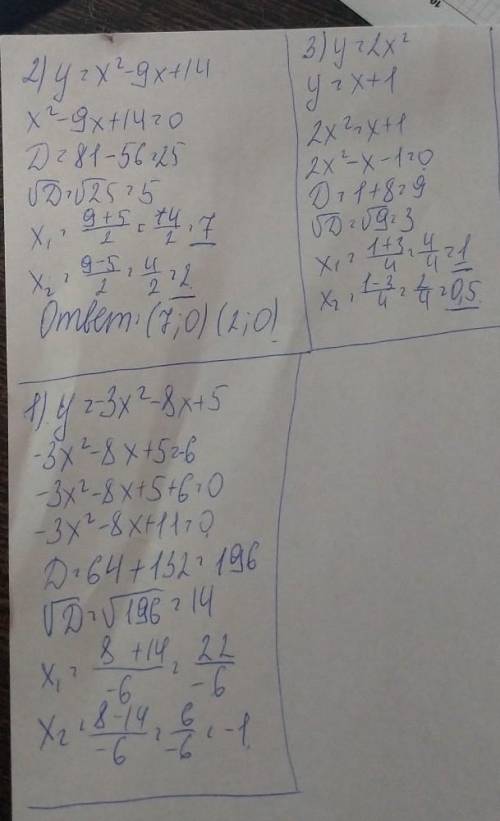 2) y = x² - 9x + 14
x² - 9x + 14 = 0
D = 81 - 56 = 25
√D = √25 = 5
x₁ = (9+5)/2 = 14/2 = 7
x₂ = (9-5)/2 = 4/2 = 2
Ответ: (7;0) (2;0)
3) y = 2x²
y = x + 1
2x² = x + 1
2x² - x - 1 = 0
D = 1 + 8 = 9
√D = √9 = 3
x₁ = (1+3)/4 = 4/4 = 1
x₂ = (1-3)/4 = 2/4 = 0,5
1) y = -3x² - 8x + 5
-3x² - 8x + 5 = -6
-3x² - 8x + 5 + 6 = 0
-3x² - 8x + 11 = 0
D = 64 + 132 = 196
√D = √196 = 14
x₁ = (8+14)/-6 = 22/-6
x₂ = (8-14)/-6 = 6/-6 = -1